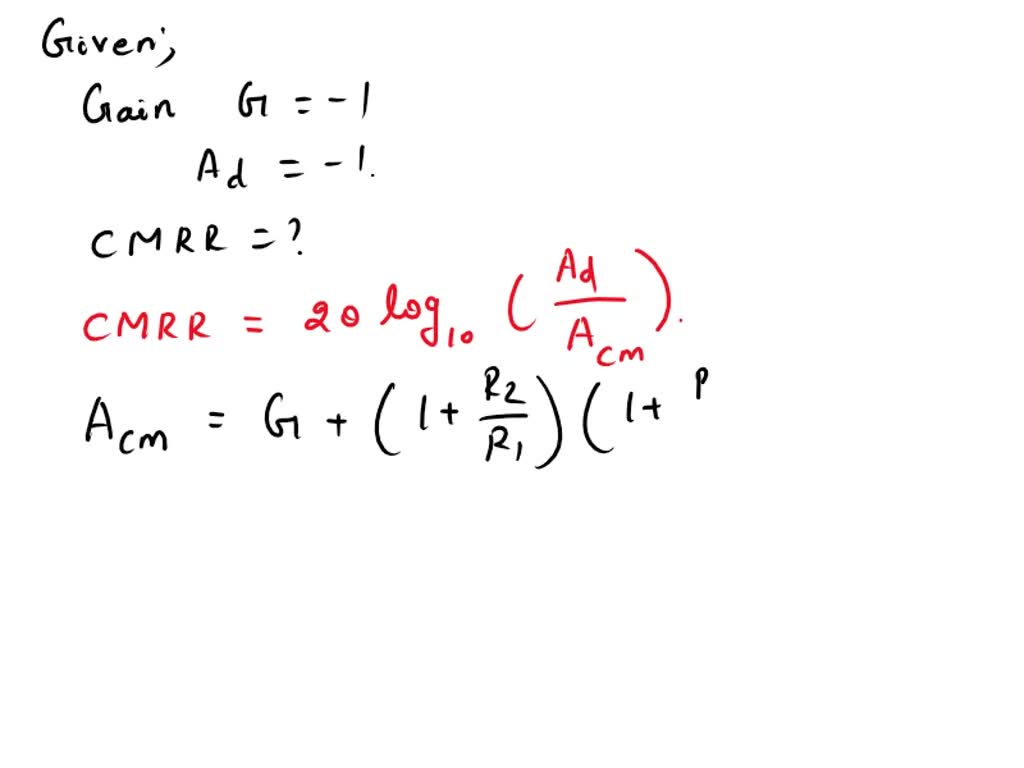 Given;
Gain G = -1
Ad = -1.
CMRR = ?
CMRR = 20 log10 (Ad/Acm).
Acm = G + (1 + R2/R1) (1 + P